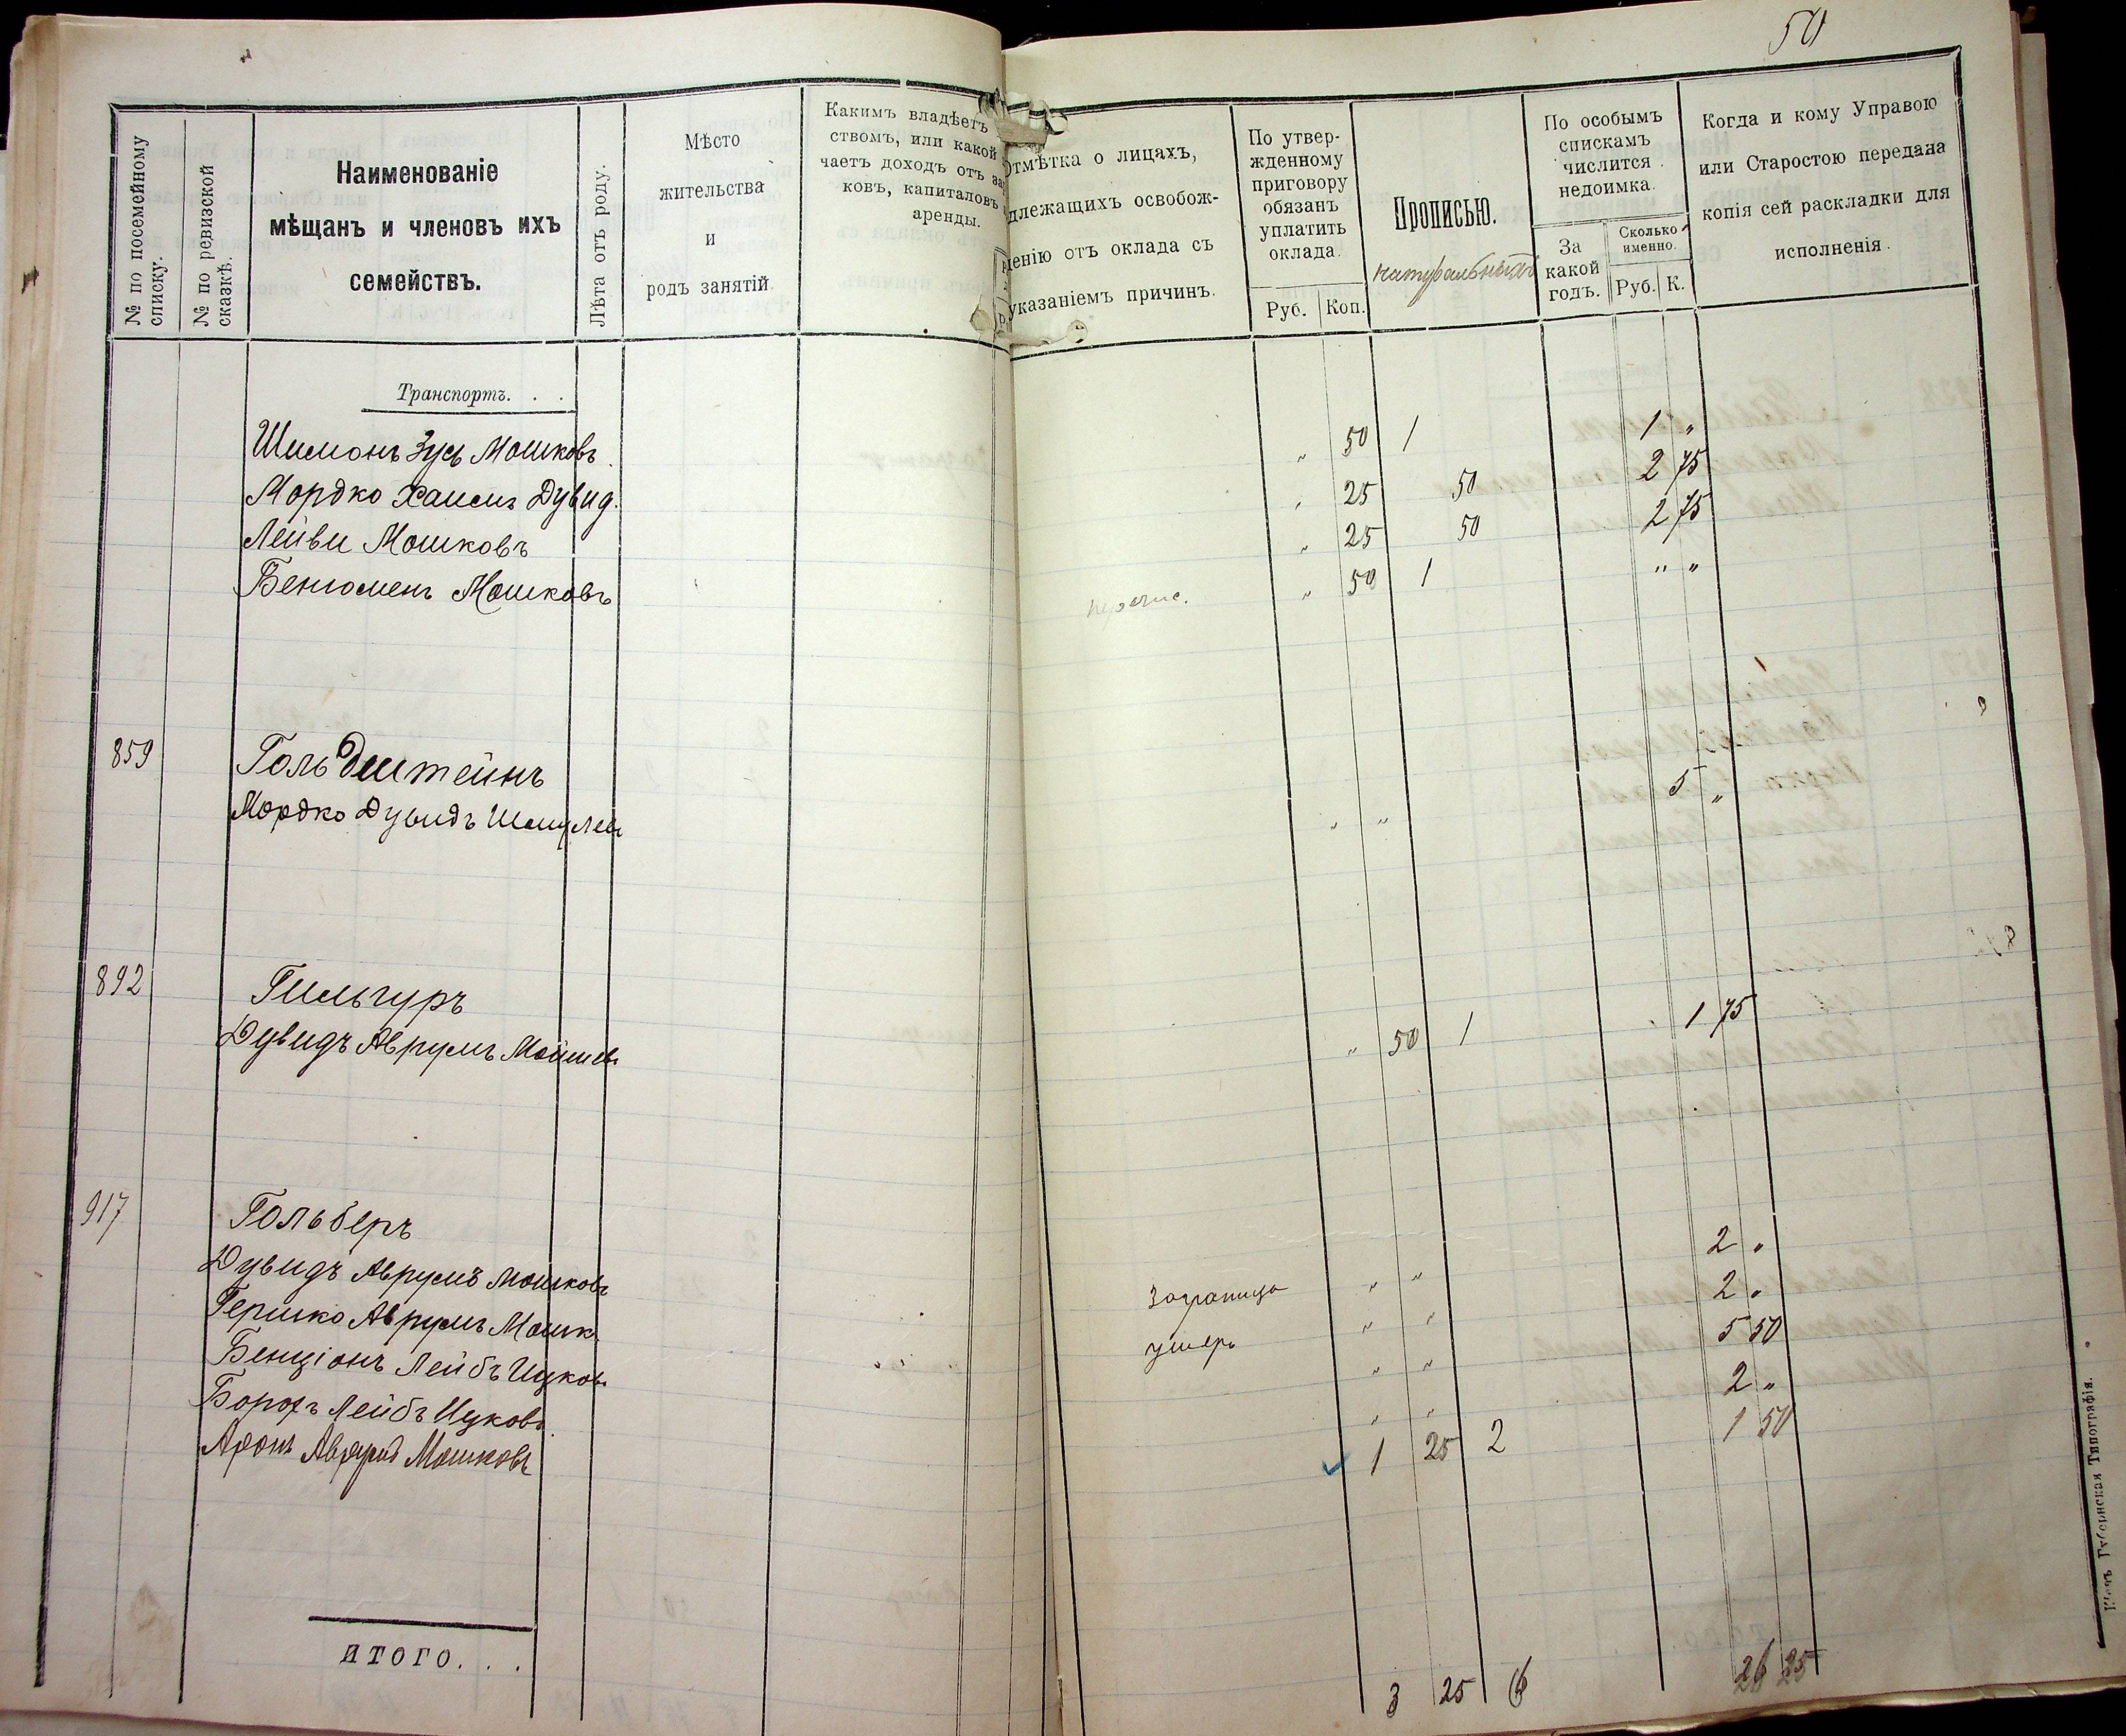 50
№ по посемейному списку.
№ по ревизской сказкѣ.
Наименованіе
мѣщанъ и членовъ ихъ
семействъ.
Лѣта отъ роду.
Мѣсто
жительства
и
родъ занятій.
Какимъ владѣетъ
ствомъ, или какой
чаетъ доходъ отъ за
ковъ, капиталовъ
аренды.
Отмѣтка о лицахъ,
длежащихъ освобож-
денію отъ оклада съ
указаніемъ причинъ.
По утвер-
жденному
приговору
обязанъ
уплатить
оклада.
Руб. Коп.
Прописью.
По особымъ
спискамъ
числится
недоимка.
За
какой
годъ.
Сколько
именно.
Руб. К.
Когда и кому Управою
или Старостою передана
копія сей раскладки для
исполненія.
Транспортъ. . .
Шимонъ Зусь Мошковъ. " 50 1 1 "
Мордко Хаимъ Дувид. " 25 50 2 75
Лейви Мошковъ " 25 50 2 75
Беньоменъ Мошковъ перечис. " 50 1 " "
859 Гольдштейнъ
Мордко Дувидъ Шмулев " " 5 "
892 Гильгуръ
Дувидъ Аврумъ Мошков " 50 1 1 75
917 Гольберъ
Дувидъ Аврумъ Мошковъ заграница " " 2 "
Гершко Аврумъ Мошк. умеръ " " 2 "
Бенціонъ Лейбъ Ицков " " 5 50
Борохъ Лейбъ Ицковъ " " 2 "
Аронъ Мошковъ 1 25 2 1 50
ИТОГО. . . 3 25 6 26 25
Кіевъ Губернская Типографія.